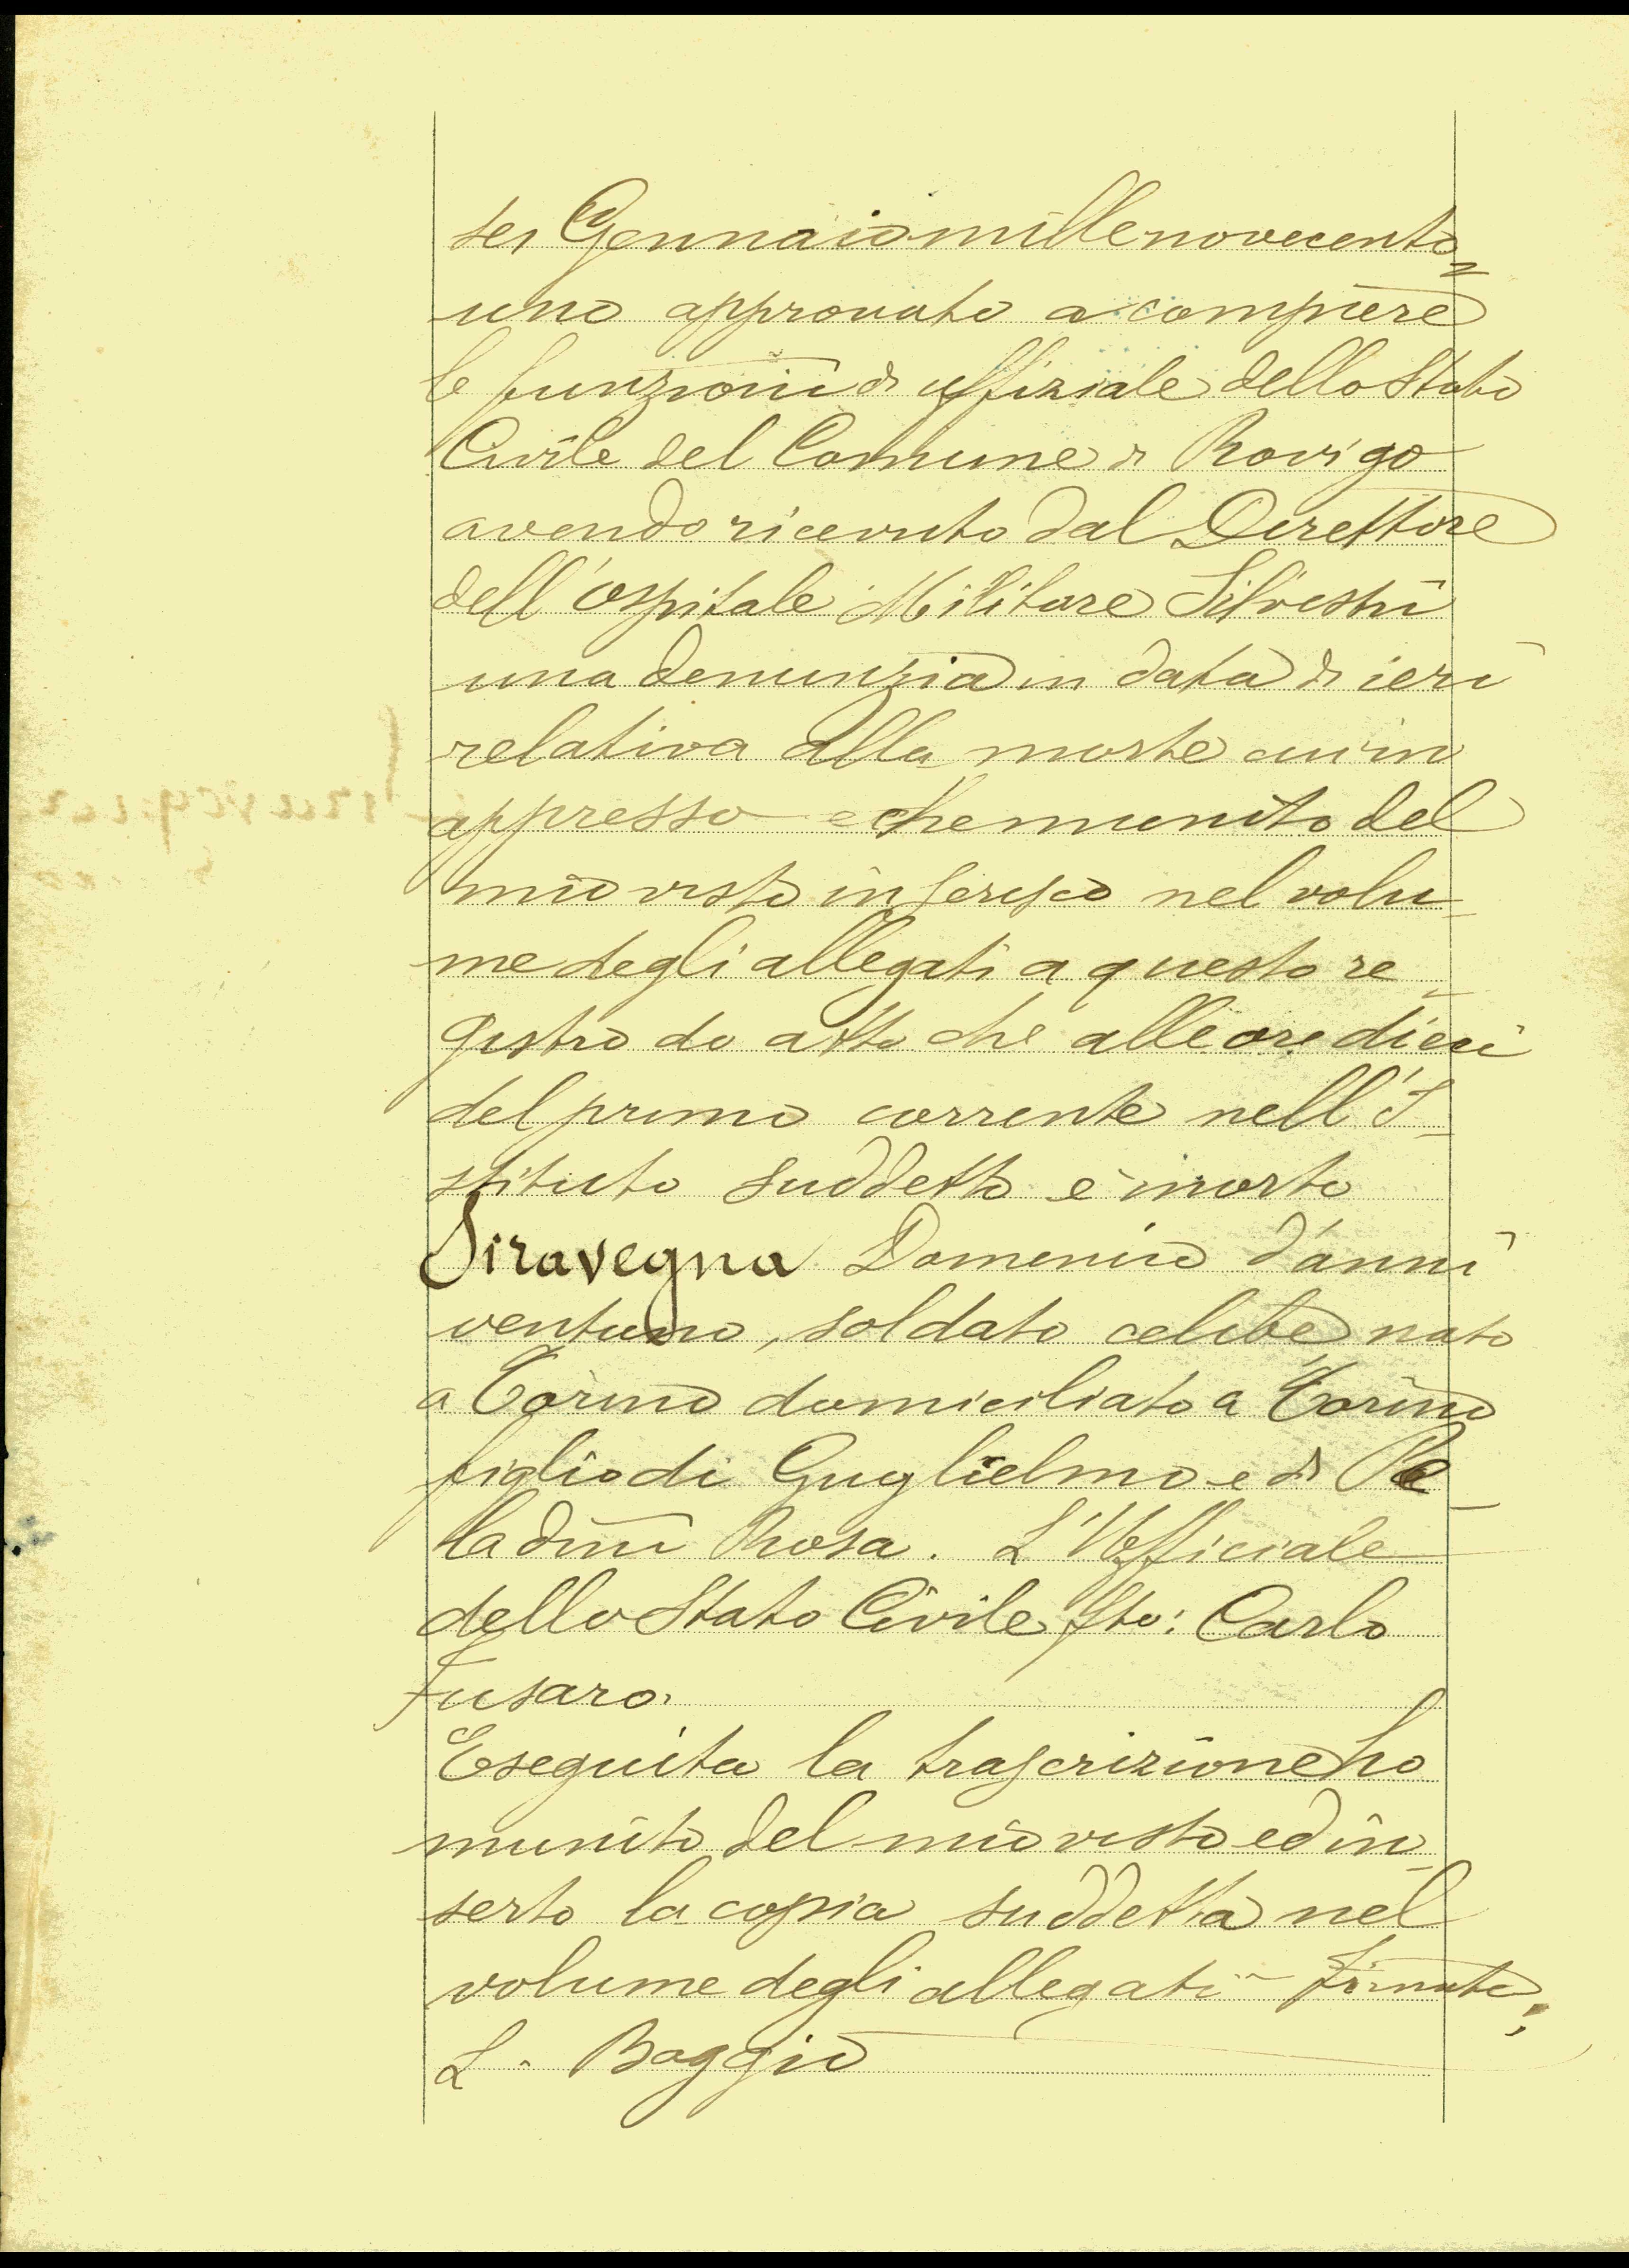 sei Gennaio millenovecento=
uno approvato a compiere
le funzioni di uffiziale dello Stato
Civile del Comune di Rovigo
avendo ricevuto dal Direttore
dell'Ospitale Militare Silvestri
una denunzia in data di ieri
relativa alla morte cui in
appresso e che munito del
mio visto inserisco nel volu-
me degli allegati a questo re-
gistro do atto che alle ore dieci
del primo corrente nell'I-
stituto suddetto è morto
Siravegna Domenico d'anni
ventuno, soldato celibe nato
a Torino domiciliato a Torino
figlio di Guglielmo e di Pa-
ladini Rosa. L'Ufficiale
dello Stato Civile fto: Carlo
Fusaro.
Eseguita la trascrizione ho
munito del mio visto ed in-
serto la copia suddetta nel
volume degli allegati - Firmato:
L. Baggio